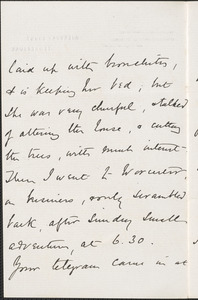 laid up with bronchitis,
& is keeping her bed, but
she was very cheerful, & talked
of altering the house, & cutting
the trees, with much interest –
Then I went to Worcester,
on business, & only scrambled
back, after sundry small
adventures, at 6.30.
Your telegram came in at